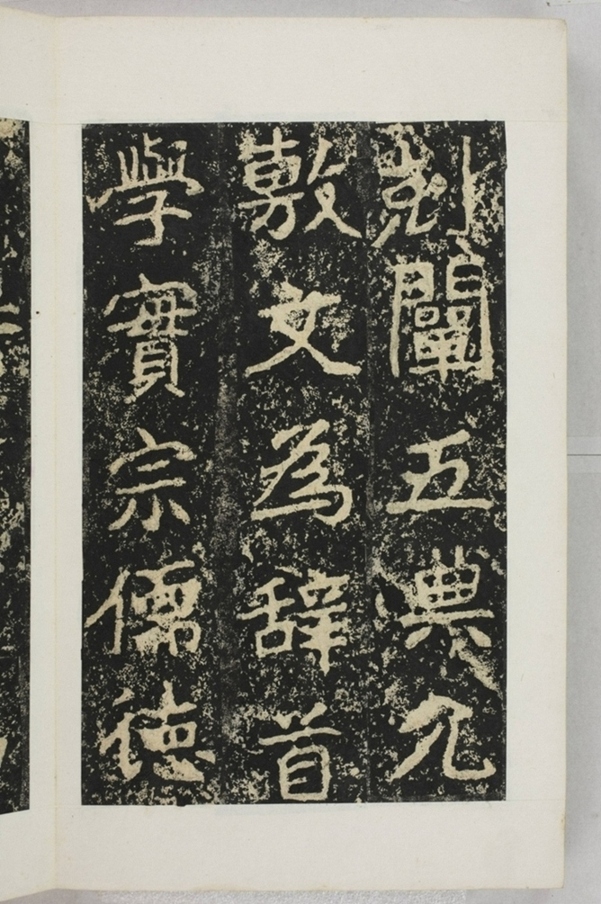 剋闡五典允
敷文為辭首
學實宗儒德